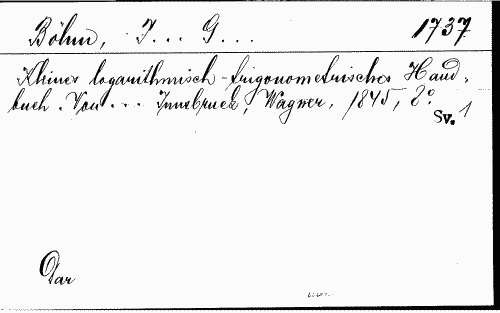 Böhm, J... G... 1737
Kleines logarithmisch-trigonometrisches Hand-
buch. Von ... Innsbruck, Wagner, 1845, 2°.
Sv. 1
Dar